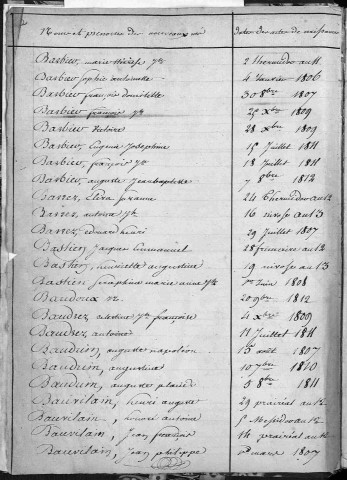 Noms et prénoms de nouveaux nés dates des actes de naissance
Barbier, marie thérèse 2 thermidor an 11
Barbier sophie antoinette 4 janvier 1806
Barbier françois 30 8bre 1807
Barbier françois 25 Xbre 1809
Barbier victoire 28 Xbre 1809
Barbier, Eugenie Josephine 15 Juillet 1811
Barbier, françois 18 Juillet 1811
Barbier, auguste Jean baptiste 7 8bre 1812
Barrez, 24 thermidor an 12
Barrez, antoine 16 nivose an 13
Barrez, edouard henri 29 Juillet 1807
Bastien Jacques Emmanuel 28 frimaire an 12
Bastien, henriette augustine 19 nivose an 13
Bastien Seraphine marie anne 1er Juin 1808
Baudoux 20 9bre 1812
Baudrez, françoise 4 Xbre 1809
Baudrez, antoine 11 Juillet 1811
Baudrin, auguste napoléon 15 août 1807
Baudrin, augustine 10 7bre 1810
Baudrin, auguste placide 3 8bre 1811
Bauvilain, henri auguste 29 prairial an 12
Bauvilain, antoine 5 Messidor an 12
Bauvilain, Jean 14 prairial an 12
Bauvilain, Jean philippe 2 mars 1807